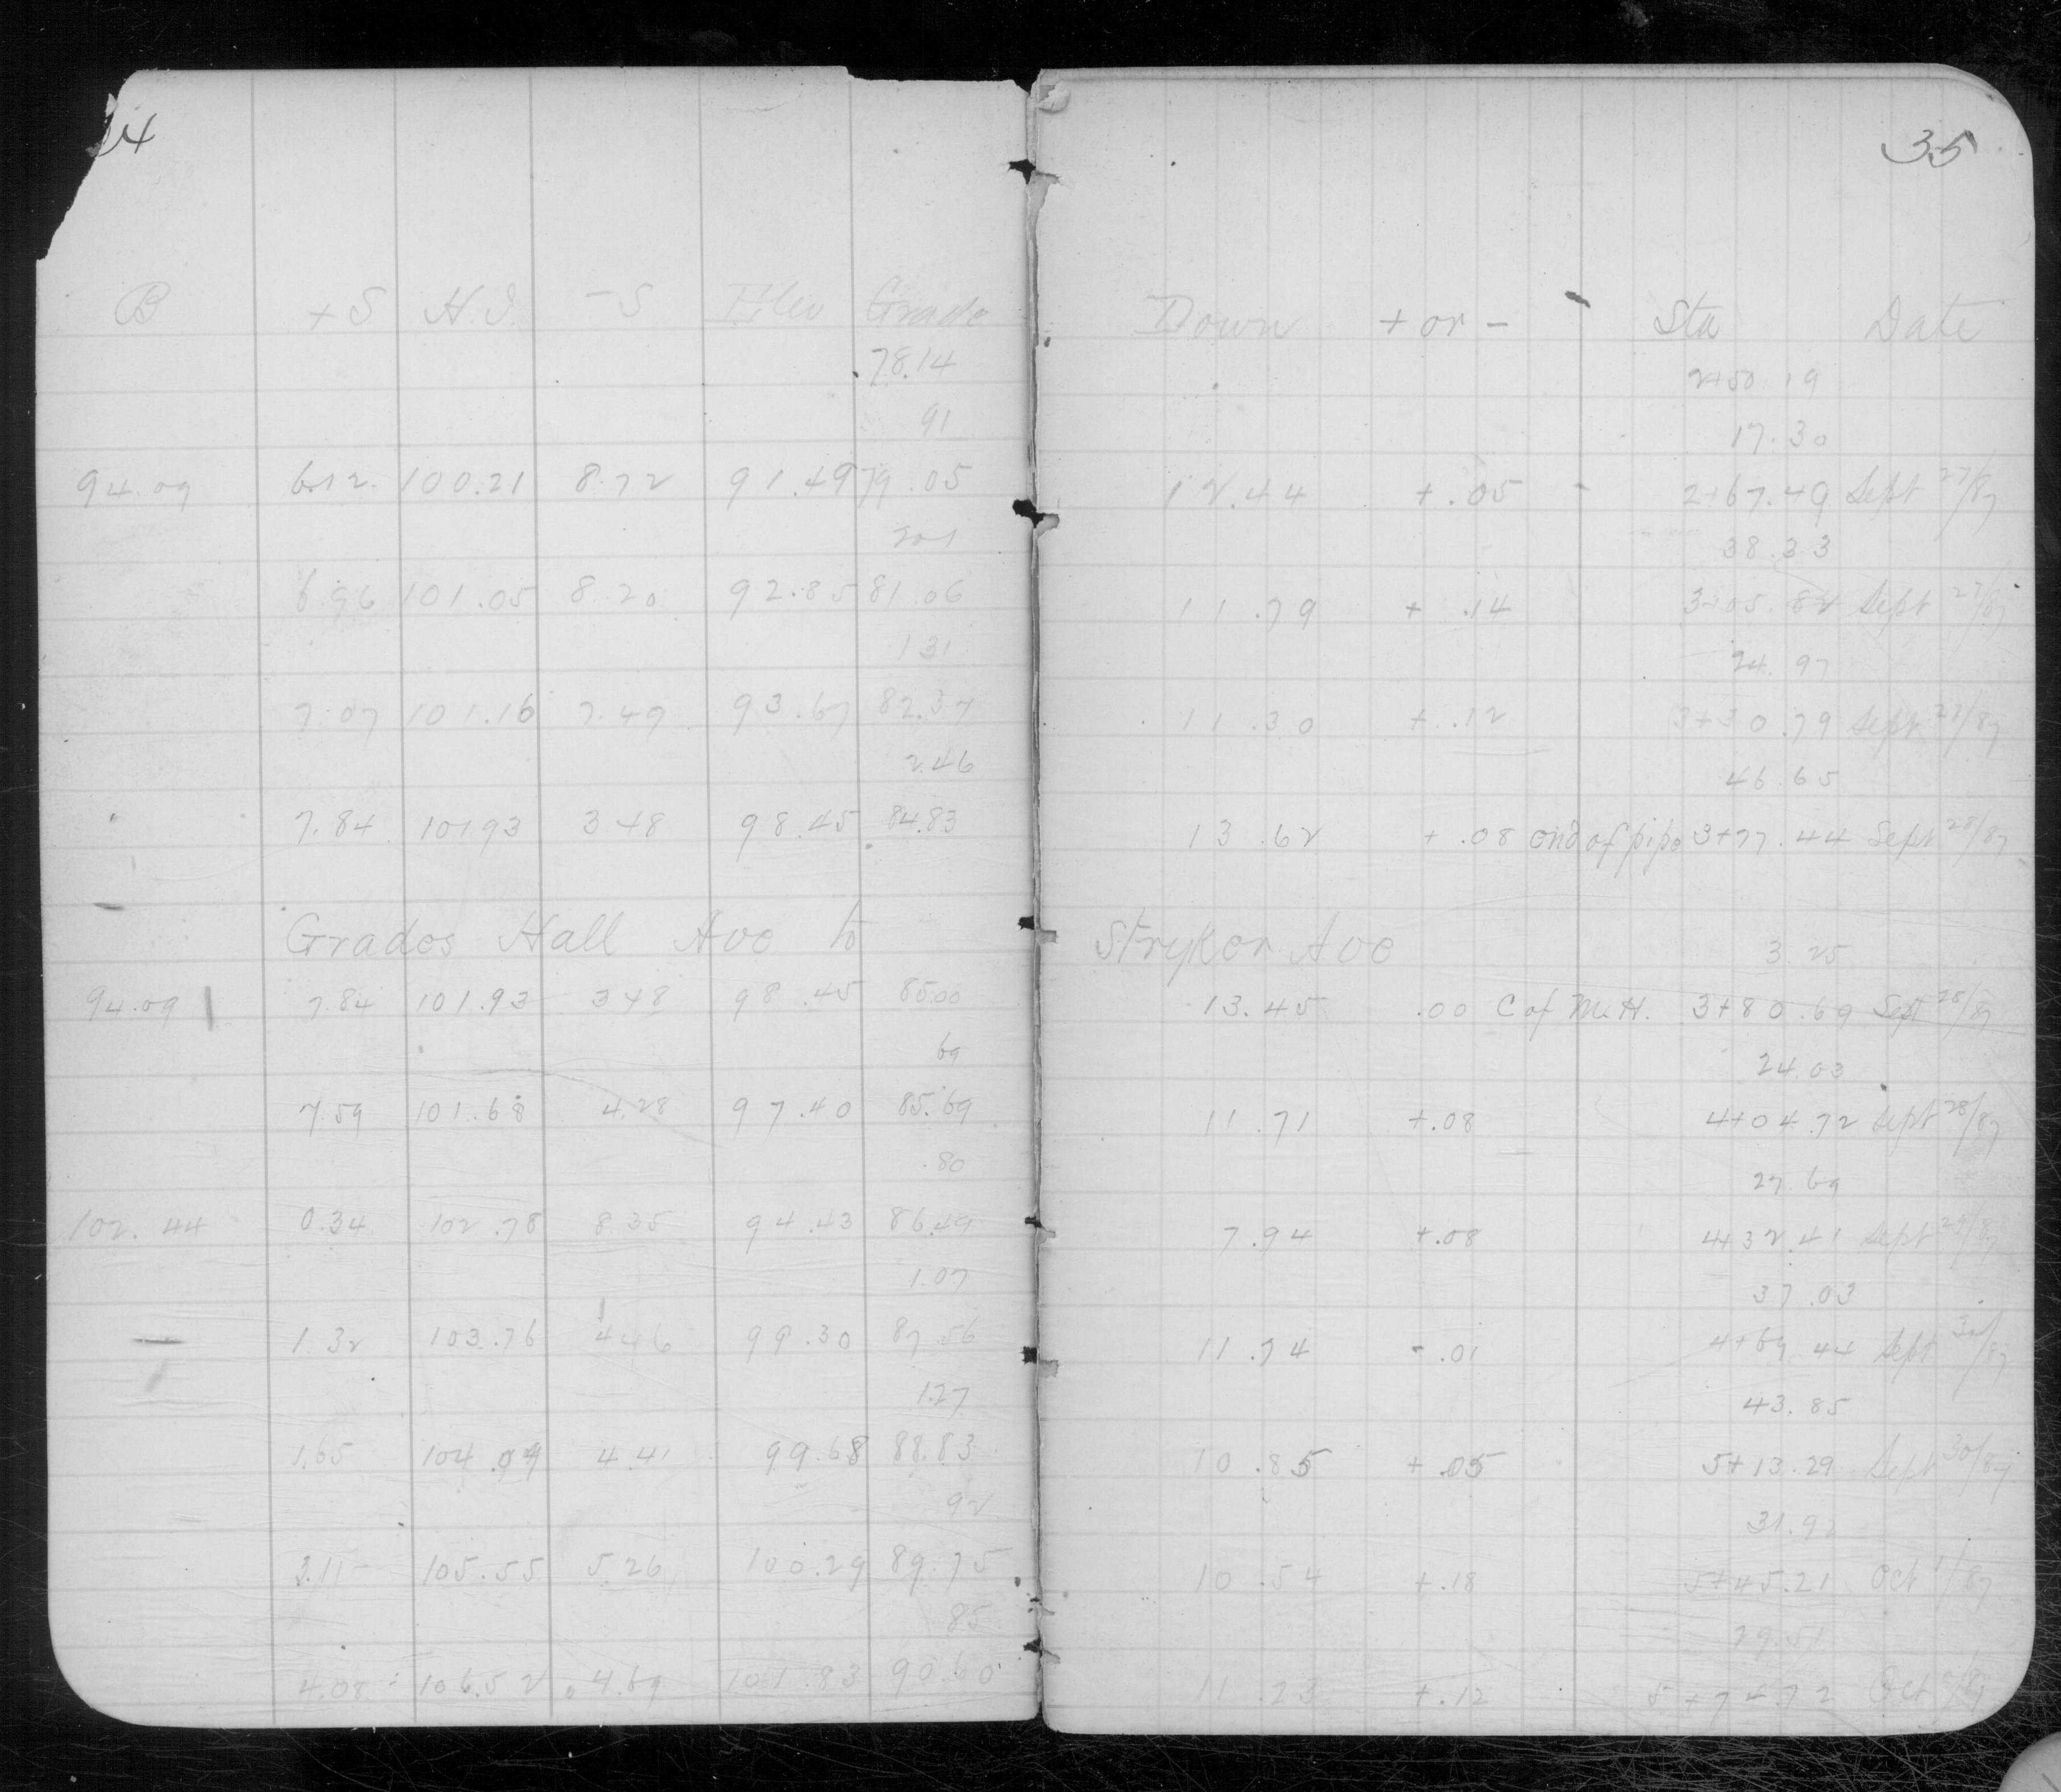 34
35
B +S H.I. -S Elev Grade Down + or - Sta Date
78.14 2+50.19
91 17.30
94.09 6.12 100.21 8.72 91.49 79.05 12.44 +.05 2+67.49 Sept 27/87
201 38.33
6.96 101.05 8.20 92.85 81.06 11.79 +.14 3+05.82 Sept 27/87
131 24.97
7.07 101.16 7.49 93.67 82.37 11.30 +.12 3+30.79 Sept 27/87
2.46 46.65
7.84 101.93 3.48 98.45 84.83 13.62 +.08 end of pipe 3+77.44 Sept 28/87
Grades Hall Ave to Stryker Ave 3.25
94.09 7.84 101.93 3.48 98.45 85.00 13.45 .00 C of M.H. 3+80.69 Sept 28/87
69 24.03
7.59 101.68 4.28 97.40 85.69 11.71 +.08 4+04.72 Sept 28/87
.80 27.69
102.44 0.34 102.78 8.35 94.43 86.49 7.94 +.08 4+32.41 Sept 29/87
1.07 37.03
1.32 103.76 4.46 99.30 87.56 11.74 -.01 4+69.44 Sept 30/87
1.27 43.85
1.65 104.09 4.41 99.68 88.83 10.85 +.05 5+13.29 Sept 30/87
92 31.92
3.11 105.55 5.26 100.29 89.75 10.54 +.18 5+45.21 Oct 1/87
85 29.51
4.08 106.52 4.69 101.83 90.60 11.23 +.12 5+74.72 Oct /87